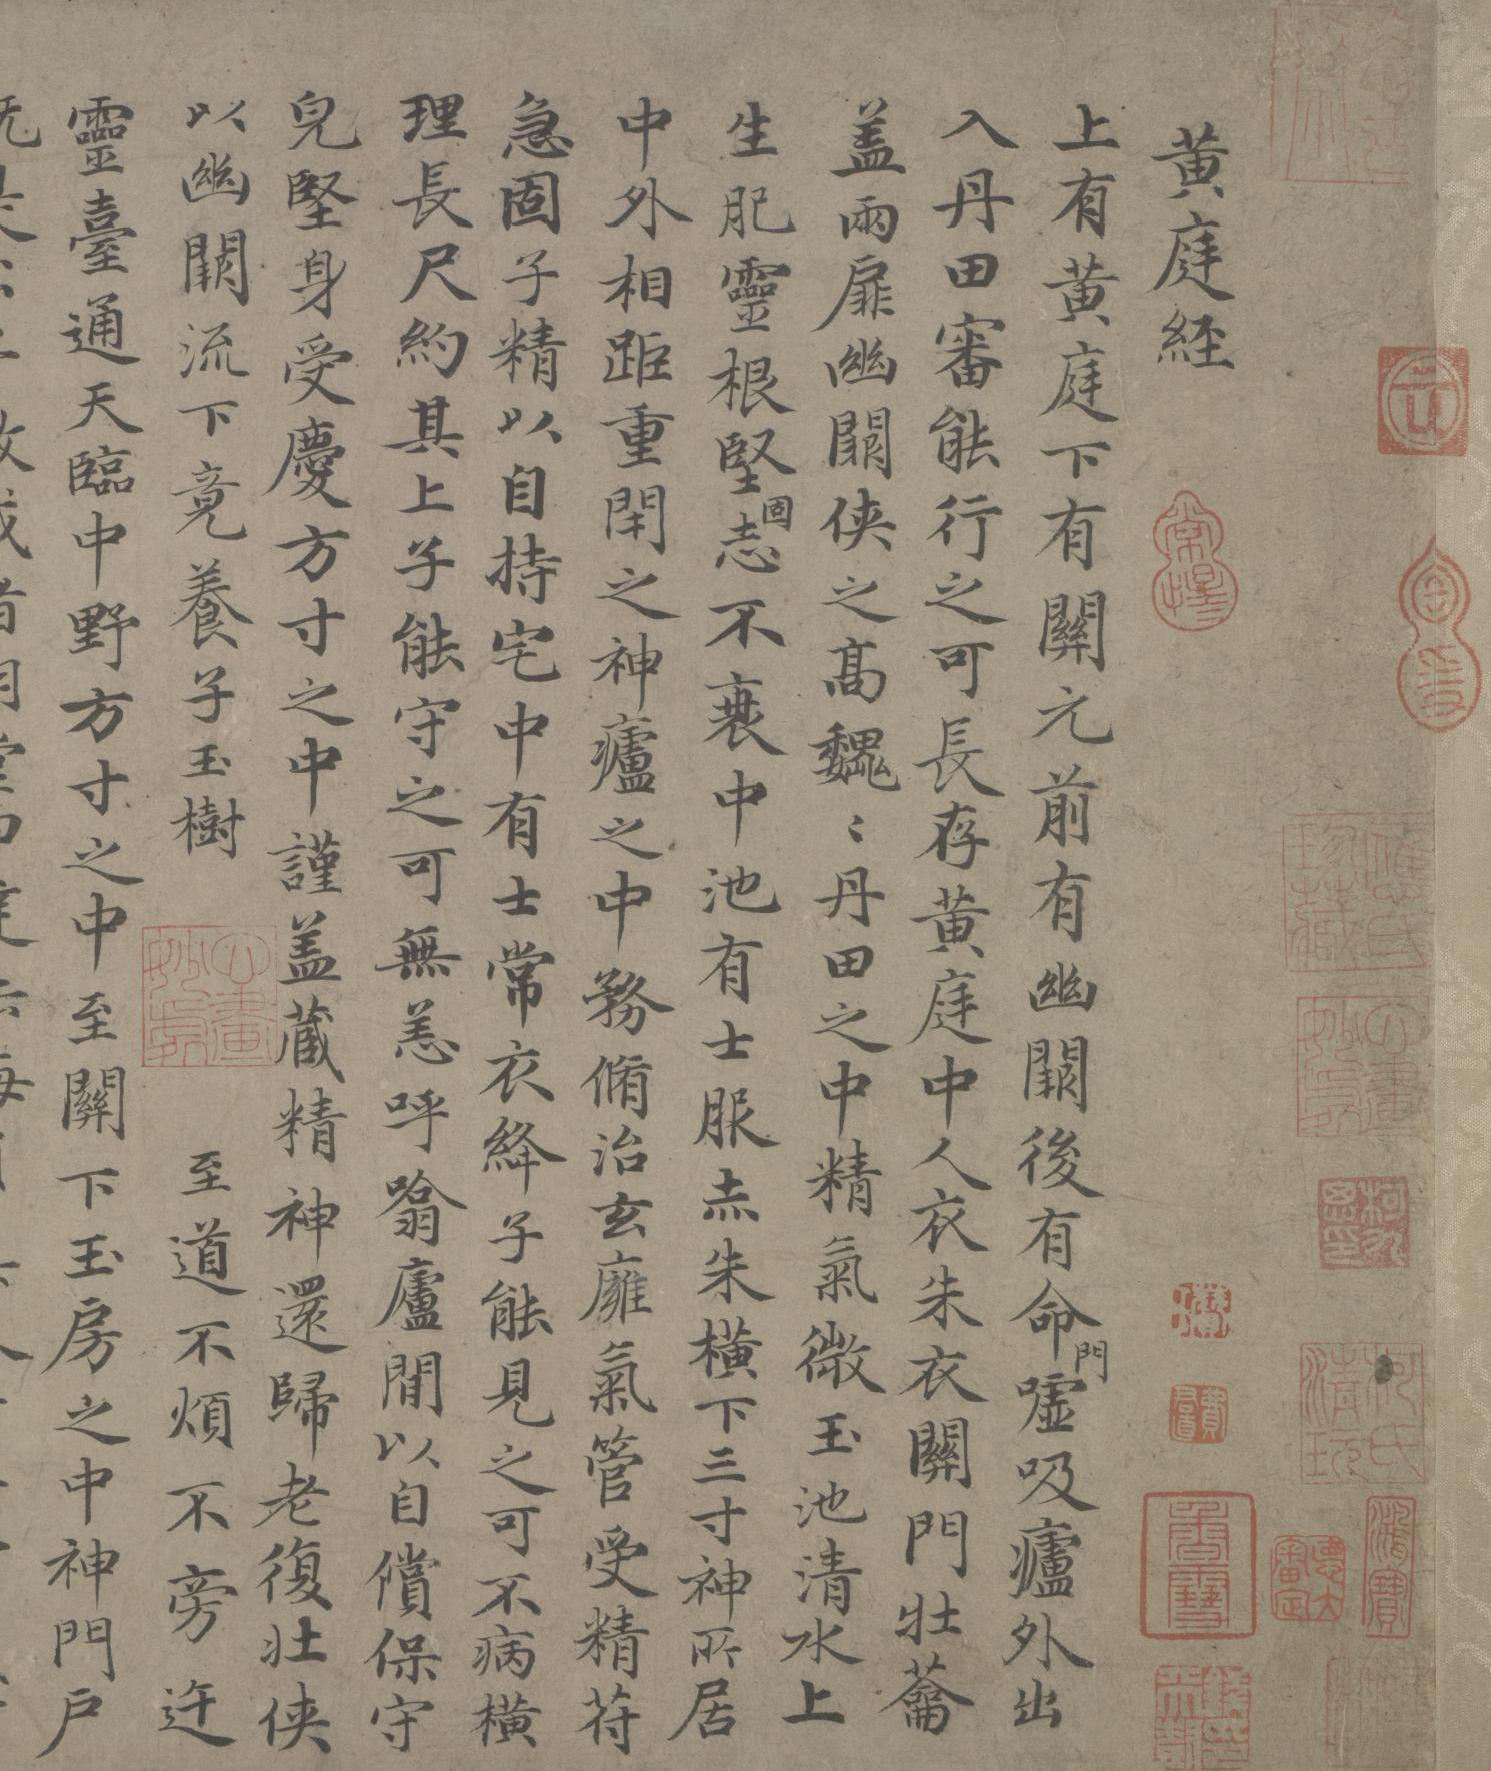 黄庭経
上有黄庭下有關元前有幽闕後有命門嘘吸廬外出
入丹田審能行之可長存黄庭中人衣朱衣關門壯蘥
盖兩扉幽闕俠之高魏〻丹田之中精氣微玉池清水上
生肥靈根堅固志不衰中池有士服赤朱横下三寸神所居
中外相距重閇之神廬之中務脩治玄廱氣管受精苻
急固子精以自持宅中有士常衣絳子能見之可不病横
理長尺約其上子能守之可無恙呼噏廬閒以自償保守
皃堅身受慶方寸之中謹盖蔵精神還歸老復壯俠
以幽闕流下竟養子玉樹 至道不煩不旁迕
靈臺通天臨中野方寸之中至關下玉房之中神門户